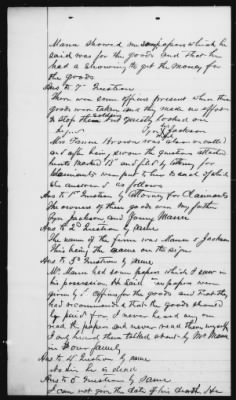 Mann showed me some papers which he
said was for the goods and that he
had a showing to get the money for
the goods
Ans to 7" Question
There were some officers present when the
goods was taken and they made no effort
to stop the soldiers but quietly looked on
Signed Jackson
Mrs Fannie Brown was also called
and after being sworn the question attached
hereto marked "B" and filed by Attorney for
Claimants were put to her to each of which
she answered as follows
Ans to 1st Question by Attorney for Claimants
The owners of these goods were my father
Jackson and Mann
Ans to 2d Question by same
The name of the firm was Mann & Jackson
This being the name on the sign
Ans to 3d Question by same
Mr. Mann had some papers which I saw in
his possession He said papers were
given by officers for the goods and that they
had recommended that the goods should
be paid for, I never heard any one
read the papers and never read them myself
I only heard them talked about by Mr Mann
in our family
Ans to 4" Question by same
No sir, he is dead
Ans to 5" Question by Same
I can not give the date of his death He